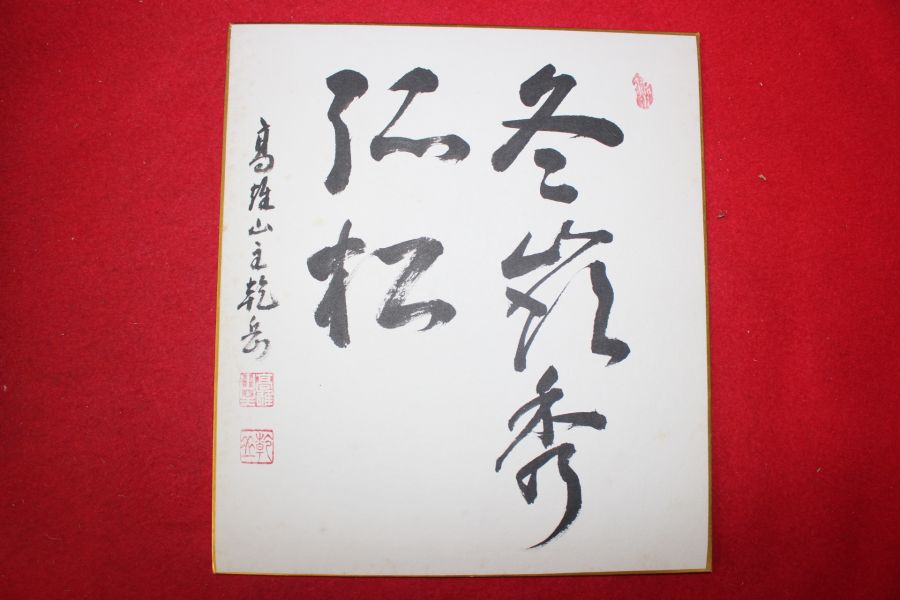 冬嶺秀
孤松
高雄山主乾岳